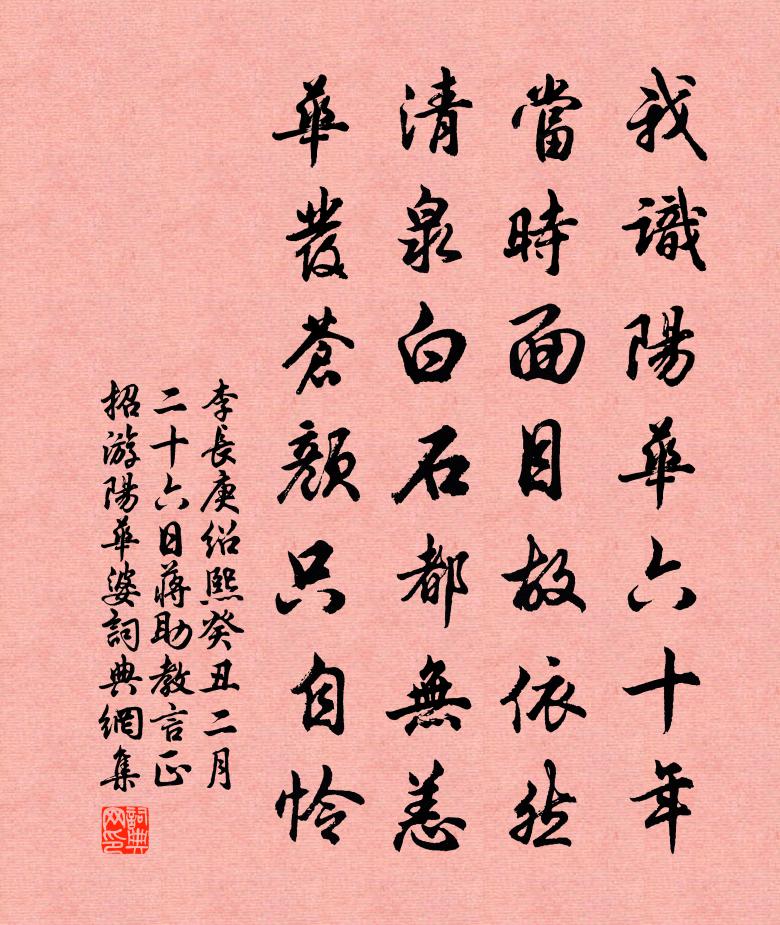 我識陽華六十年
當時面目故依然
清泉白石都無恙
華發蒼顏只自憐
李長庚紹熙癸丑二月
二十六日蔣助教言正
招游陽華婆詞典網集
詞典
网印